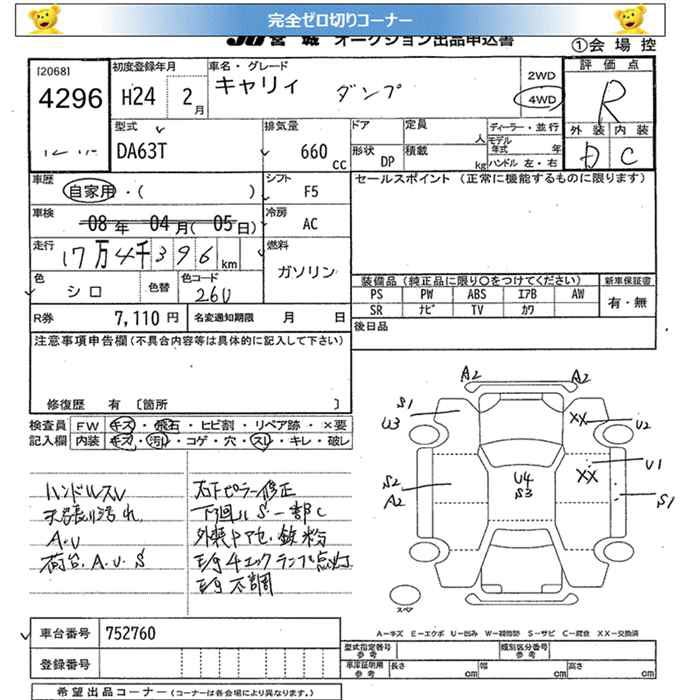 完全ゼロ切りコーナー
JU宮城 オークション出品申込書
①会場控
[2068]
4296
初度登録年月
H24 2月
車名・グレード
キャリィ ダンプ
2WD
4WD
評価点
R
外装 内装
D C
型式
DA63T
排気量
660 cc
ドア
定員 人
形状 DP
積載 kg
ディーラー・並行
モデル年式 年
ハンドル 左・右
車歴
自家用・( )
シフト
F5
セールスポイント (正常に機能するものに限ります)
車検
08年 04月(05日)
冷房
AC
走行
17万4千396km
燃料
ガソリン
色
シロ
色替
色コード
26U
装備品 (純正品に限り〇をつけてください)
新車保証書
PS PW ABS エアB AW
SR ナビ TV カワ
有・無
R券 7,110円
名変通知期限 月 日
後日品
注意事項申告欄(不具合内容等は具体的に記入して下さい)
修復歴 有 〔箇所 〕
検査員記入欄
FW キズ・飛石・ヒビ割・リペア跡・×要
内装 キズ・汚れ・コゲ・穴・スレ・キレ・破レ
ハンドルスレ
天張り汚れ
A.U
荷台.A.U.S
右下ピラー修正
下廻りS一部C
外装ドアセ.鉄粉
E/gチェックランプ点灯
E/g不調
A2 A2
S1
U3
XX
U2
S2
A2
U4
S3
XX
U1
S1
スペア
A−キズ E−エクボ U−凹み W−補修跡 S−サビ C−腐食 XX−交換済
車台番号 752760
登録番号
型式指定番号 参考
類別区分番号 参考
車庫証明用 参考
長さ cm
幅 cm
高さ cm
希望出品コーナー (コーナーは各会場により異なります。)